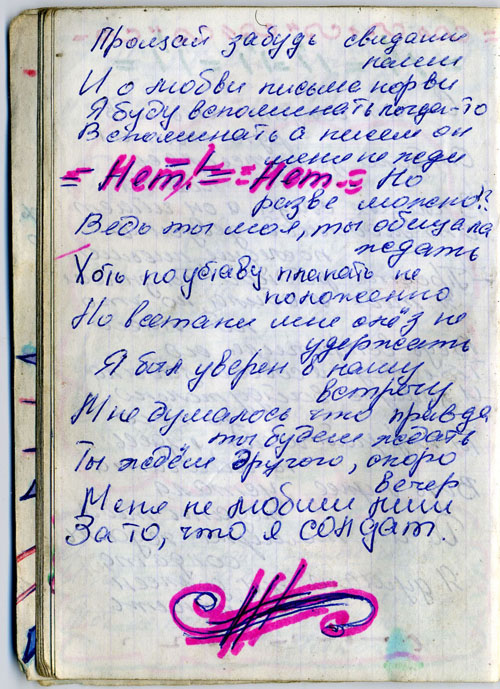 Прощай забудь свидания
наши
И о любви письма порви
Я буду вспоминать когда-то
Вспоминать а писем он
меня не жди
= Нет! = = Нет = Но
разве можно!?
Ведь ты моя, ты обещала
ждать
Хоть по уставу плакать не
положенно
Но всетаки мне слёз не
удержать
Я был уверен в нашу
встречу
Мне думалось что правда
ты будеш ждать
Ты ждёш другого, скоро
вечер
Меня не любиш
За то, что я солдат.